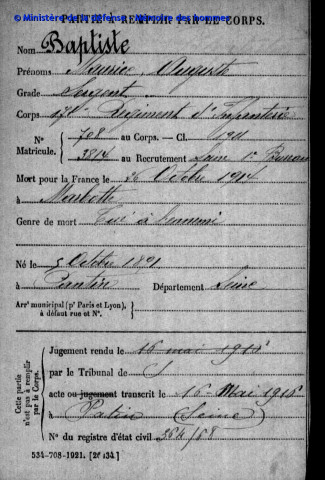 © Ministère de la défense - Mémoire des hommes
PARTIE À REMPLIR PAR LE CORPS.
Nom Baptiste
Prénoms Maurice, Auguste
Grade Sergent
Corps 171e Régiment d'Infanterie
N° 708 au Corps. — Cl. 1911
Matricule. 3814 au Recrutement Seine 1er Bureau
Mort pour la France le 26 Octobre 1914
à
Genre de mort Tué à l'ennemi
Né le 5 Octobre 1891
à Pantin Département Seine
Arrt municipal (pr Paris et Lyon),
à défaut rue et N°.
Cette partie
n'est pas à remplir
par le Corps.
Jugement rendu le 16 mai 1918
par le Tribunal de S
acte ou jugement transcrit le 16 Mai 1918
à Pantin (Seine)
N° du registre d'état civil 384/68
534-708-1921. [26434.]